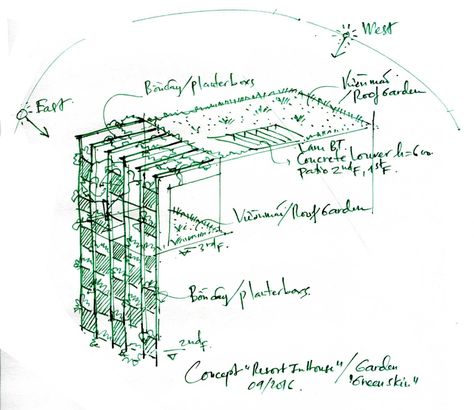 West
East
Bồn cây/planter boxs
Vườn mái/
Roof Garden
Lam BT.
Concrete Louver h=600
Patio 2ndF, 1stF.
Vườn mái/Roof Garden
3rdF.
Bồn cây/planter boxs.
2ndF.
Concept "Resort In House"/ Garden
09/2016. "Green skin"